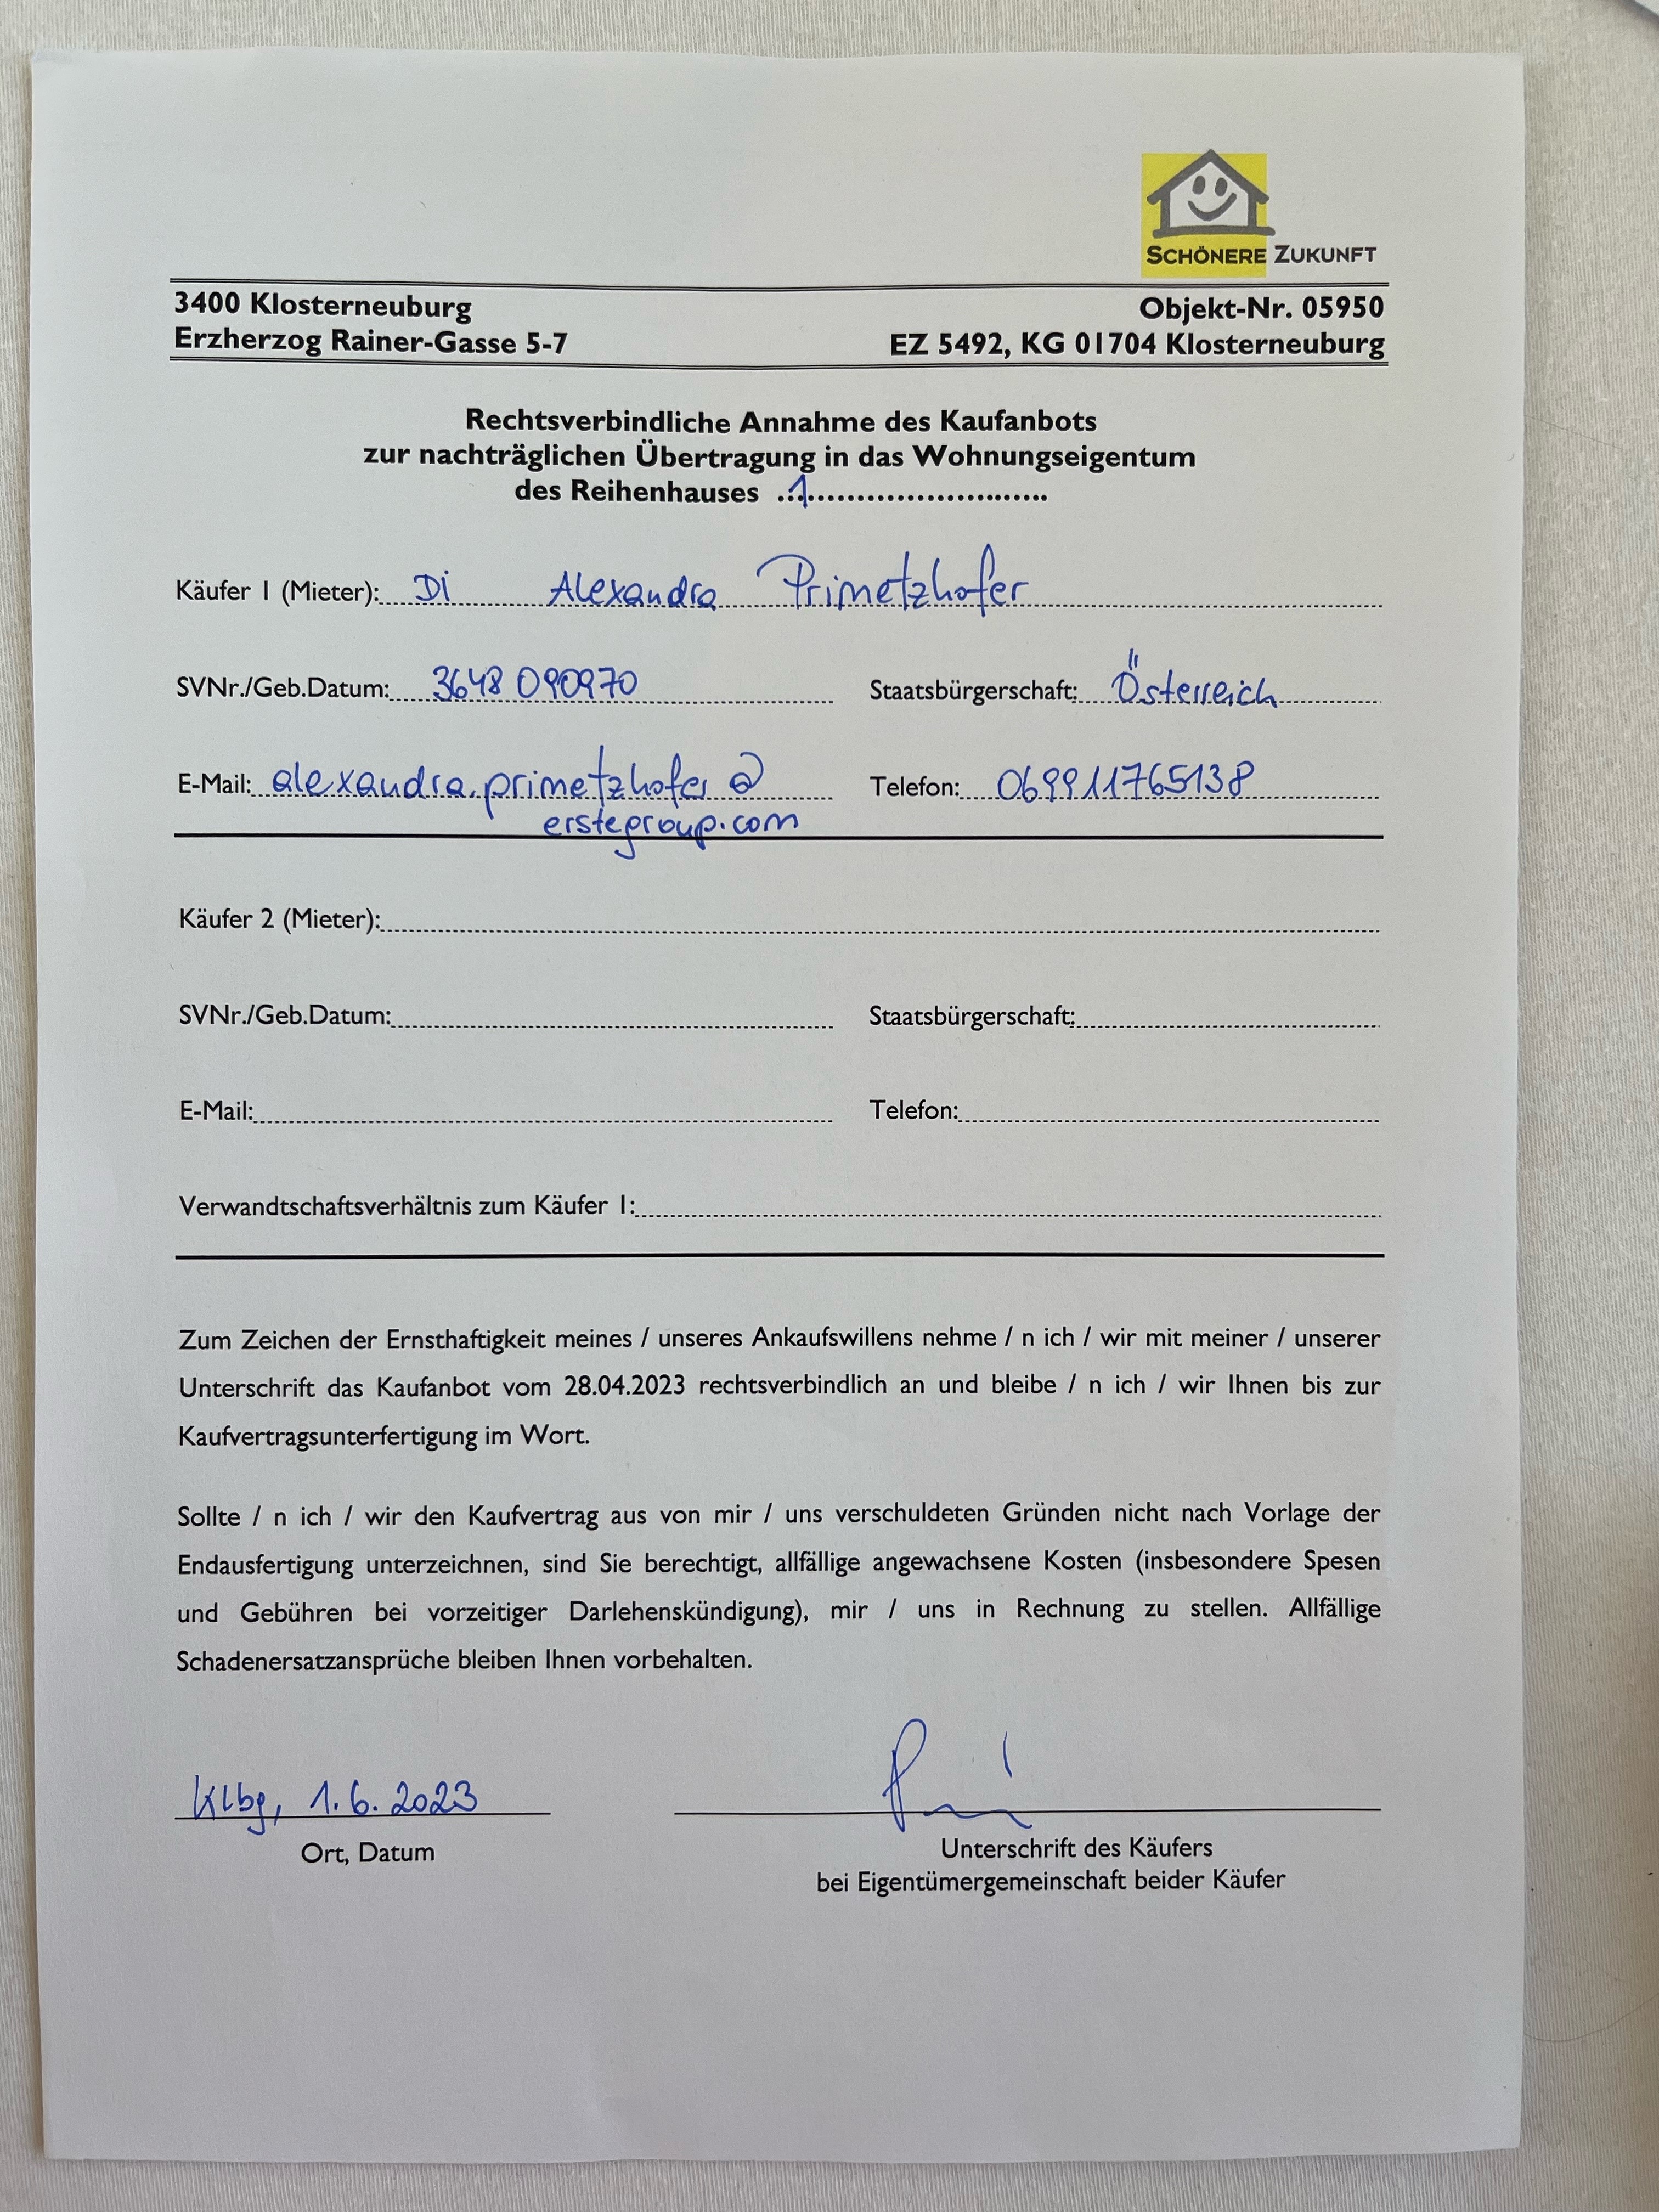 SCHÖNERE ZUKUNFT
3400 Klosterneuburg Objekt-Nr. 05950
Erzherzog Rainer-Gasse 5-7 EZ 5492, KG 01704 Klosterneuburg
Rechtsverbindliche Annahme des Kaufanbots
zur nachträglichen Übertragung in das Wohnungseigentum
des Reihenhauses 1
Käufer 1 (Mieter): Di Alexandra Primetzhofer
SVNr./Geb.Datum: 3648 090970 Staatsbürgerschaft: Österreich
E-Mail: alexandra.primetzhofer@ Telefon: 069911765138
erstegroup.com
Käufer 2 (Mieter):
SVNr./Geb.Datum: Staatsbürgerschaft:
E-Mail: Telefon:
Verwandtschaftsverhältnis zum Käufer 1:
Zum Zeichen der Ernsthaftigkeit meines / unseres Ankaufswillens nehme / n ich / wir mit meiner / unserer
Unterschrift das Kaufanbot vom 28.04.2023 rechtsverbindlich an und bleibe / n ich / wir Ihnen bis zur
Kaufvertragsunterfertigung im Wort.
Sollte / n ich / wir den Kaufvertrag aus von mir / uns verschuldeten Gründen nicht nach Vorlage der
Endausfertigung unterzeichnen, sind Sie berechtigt, allfällige angewachsene Kosten (insbesondere Spesen
und Gebühren bei vorzeitiger Darlehenskündigung), mir / uns in Rechnung zu stellen. Allfällige
Schadenersatzansprüche bleiben Ihnen vorbehalten.
Klbg, 1.6.2023
Ort, Datum Unterschrift des Käufers
bei Eigentümergemeinschaft beider Käufer